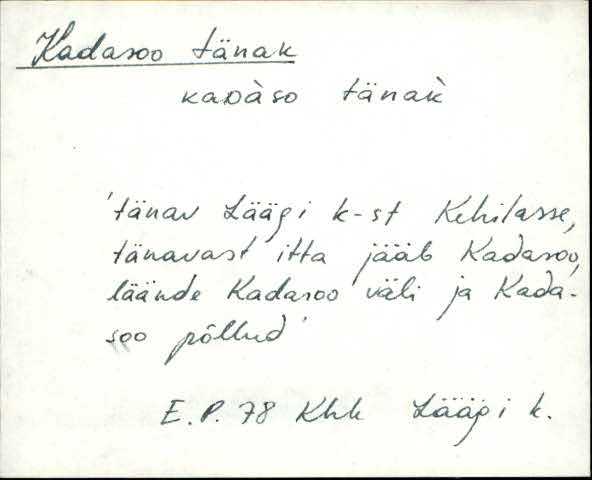 Kadasoo tänak
kaᴅàso tänak̀
'tänav Läägi k-st Kehilasse,
tänavast itta jääb Kadasoo,
läände Kadasoo väli ja Kada-
soo põllud'
E.P. 78 Khk Läägi k.